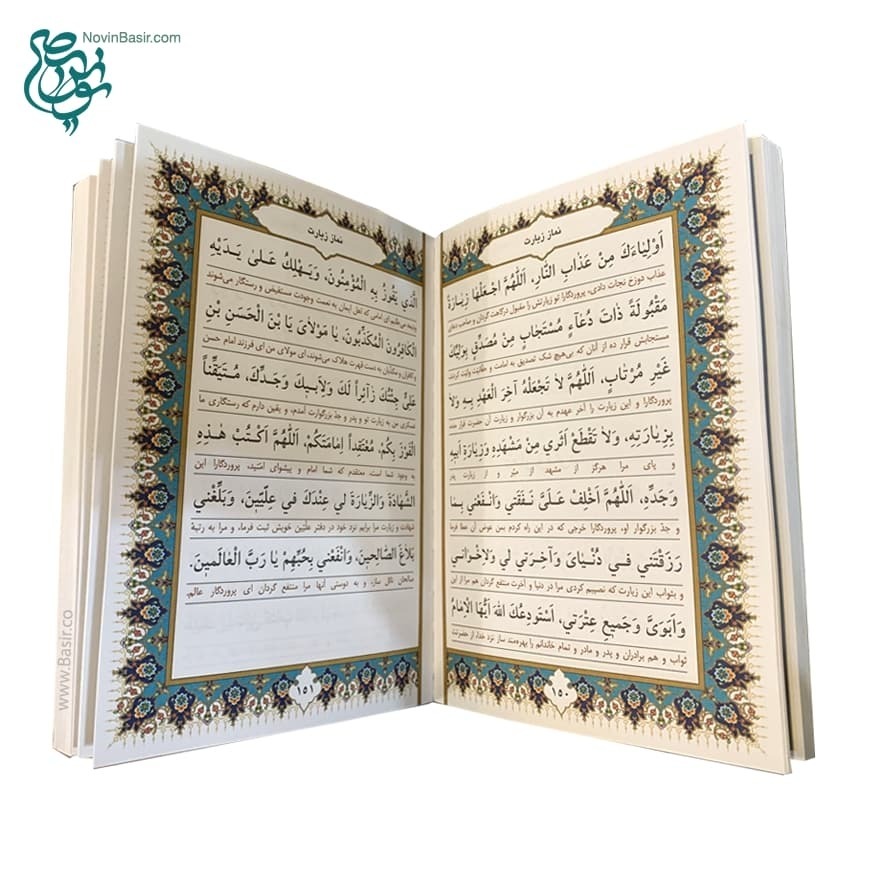 NovinBasir.com
نماز زیارت
اَوْلِیٰاءَكَ مِنْ عَذٰابِ النّٰارِ، اَللّٰهُمَّ اجْعَلْهٰا زِیٰارَةً
عذاب دوزخ نجات دادی، پروردگارا تو زیارتش را مقبول درگاهت گردان و صاحب دعای
مَقْبُولَةً ذٰاتَ دُعٰاءٍ مُسْتَجٰابٍ مِنْ مُصَدِّقٍ بِوَلِیِّكَ
مستجابش قرار ده از آنان که بی‌هیچ شک تصدیق به امامت و حقانیت ولیت کردند،
غَیْرِ مُرْتٰابٍ، اَللّٰهُمَّ لاٰ تَجْعَلْهُ آخِرَ الْعَهْدِ بِهِ وَلاٰ
پروردگارا و این زیارت را آخر عهدم به آن بزرگوار و زیارت آن، حضرت قرار مده
بِزِیٰارَتِهِ، وَلاٰ تَقْطَعْ اَثَرِي مِنْ مَشْهَدِهِ وَزِیٰارَةِ اَبِیهِ
و پای مرا هرگز از مشهد از و از زیارت پدر
وَجَدِّهِ، اَللّٰهُمَّ اَخْلِفْ عَلَيَّ نَفَقَتي وَانْفَعْني بِمٰا
و جدّ بزرگوار او، پروردگارا خرجی که در این راه کردم پس عوض آن عطا فرما
رَزَقْتَني في دُنْیٰایَ وَآخِرَتي لي وَلاِخْوٰاني
و بثواب این زیارت که نصیبم کردی مرا در دنیا و آخرت منتفع گردان هم مرا از این
وَاَبَوَيَّ وَجَمیعِ عِتْرَتي، اَسْتَوْدِعُكَ اللّٰهَ اَیُّهَا الْاِمٰامُ
ثواب و هم برادران و پدر و مادر و تمام خاندانم را بهره‌مند ساز نزد خدا، از حضرتت
١٥٠
نماز زیارت
الَّذي یَفُوزُ بِهِ الْمُؤْمِنُونَ، وَیَهْلِكُ عَلیٰ یَدَیْهِ
ودیعه می‌طلبم ای امامی که اهل ایمان به نعمت وجودت مستفیض و رستگار می‌شوند
الْكٰافِرُونَ الْمُكَذِّبُونَ، یٰا مَوْلاٰيَ یَا بْنَ الْحَسَنِ بْنِ
و کافران و مکذّبان به دست قهرت هلاک می‌شوند، ای مولای من ای فرزند امام حسن
عَلِيٍّ جِئْتُكَ زٰائِراً لَكَ وَلِاَبیكَ وَجَدِّكَ، مُتَیَقِّناً
عسکری من به زیارت تو و پدر و جدّ بزرگوارت آمدم، و یقین دارم که رستگاری ما
الْفَوْزَ بِكُمْ، مُعْتَقِداً اِمٰامَتَكُمْ، اَللّٰهُمَّ اكْتُبْ هٰذِهِ
به وجود شما است، معتقدم که شما امام و پیشوای امّتید، پروردگارا این
الشَّهٰادَةَ وَالزِّیٰارَةَ لي عِنْدَكَ في عِلِّیّینَ، وَبَلِّغْني
شهادت و زیارت مرا برایم نزد خود در دفتر علّیّین خویش ثبت فرما، و مرا به رتبهٔ
بَلاٰغَ الصّٰالِحینَ، وَانْفَعْني بِحُبِّهِمْ یٰا رَبَّ الْعٰالَمینَ.
صالحان نائل ساز، و به دوستی آنها مرا منتفع گردان ای پروردگار عالم.
١٥١
www.Basir.co